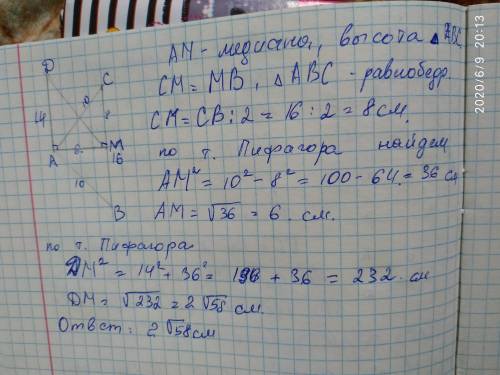 AM - медиана, высота △ ABC
CM = MB, △ ABC - равнобедр.
CM = CB : 2 = 16 : 2 = 8 см.
по т. Пифагора найдем
AM² = 10² - 8² = 100 - 64 = 36 см
AM = √36 = 6 см.
D
C
14
8
6
A
M
16
10
B
по т. Пифагора
DM² = 14² + 36² = 196 + 36 = 232 см
DM = √232 = 2√58 см.
Ответ: 2√58 см
2020/6/9 20:13